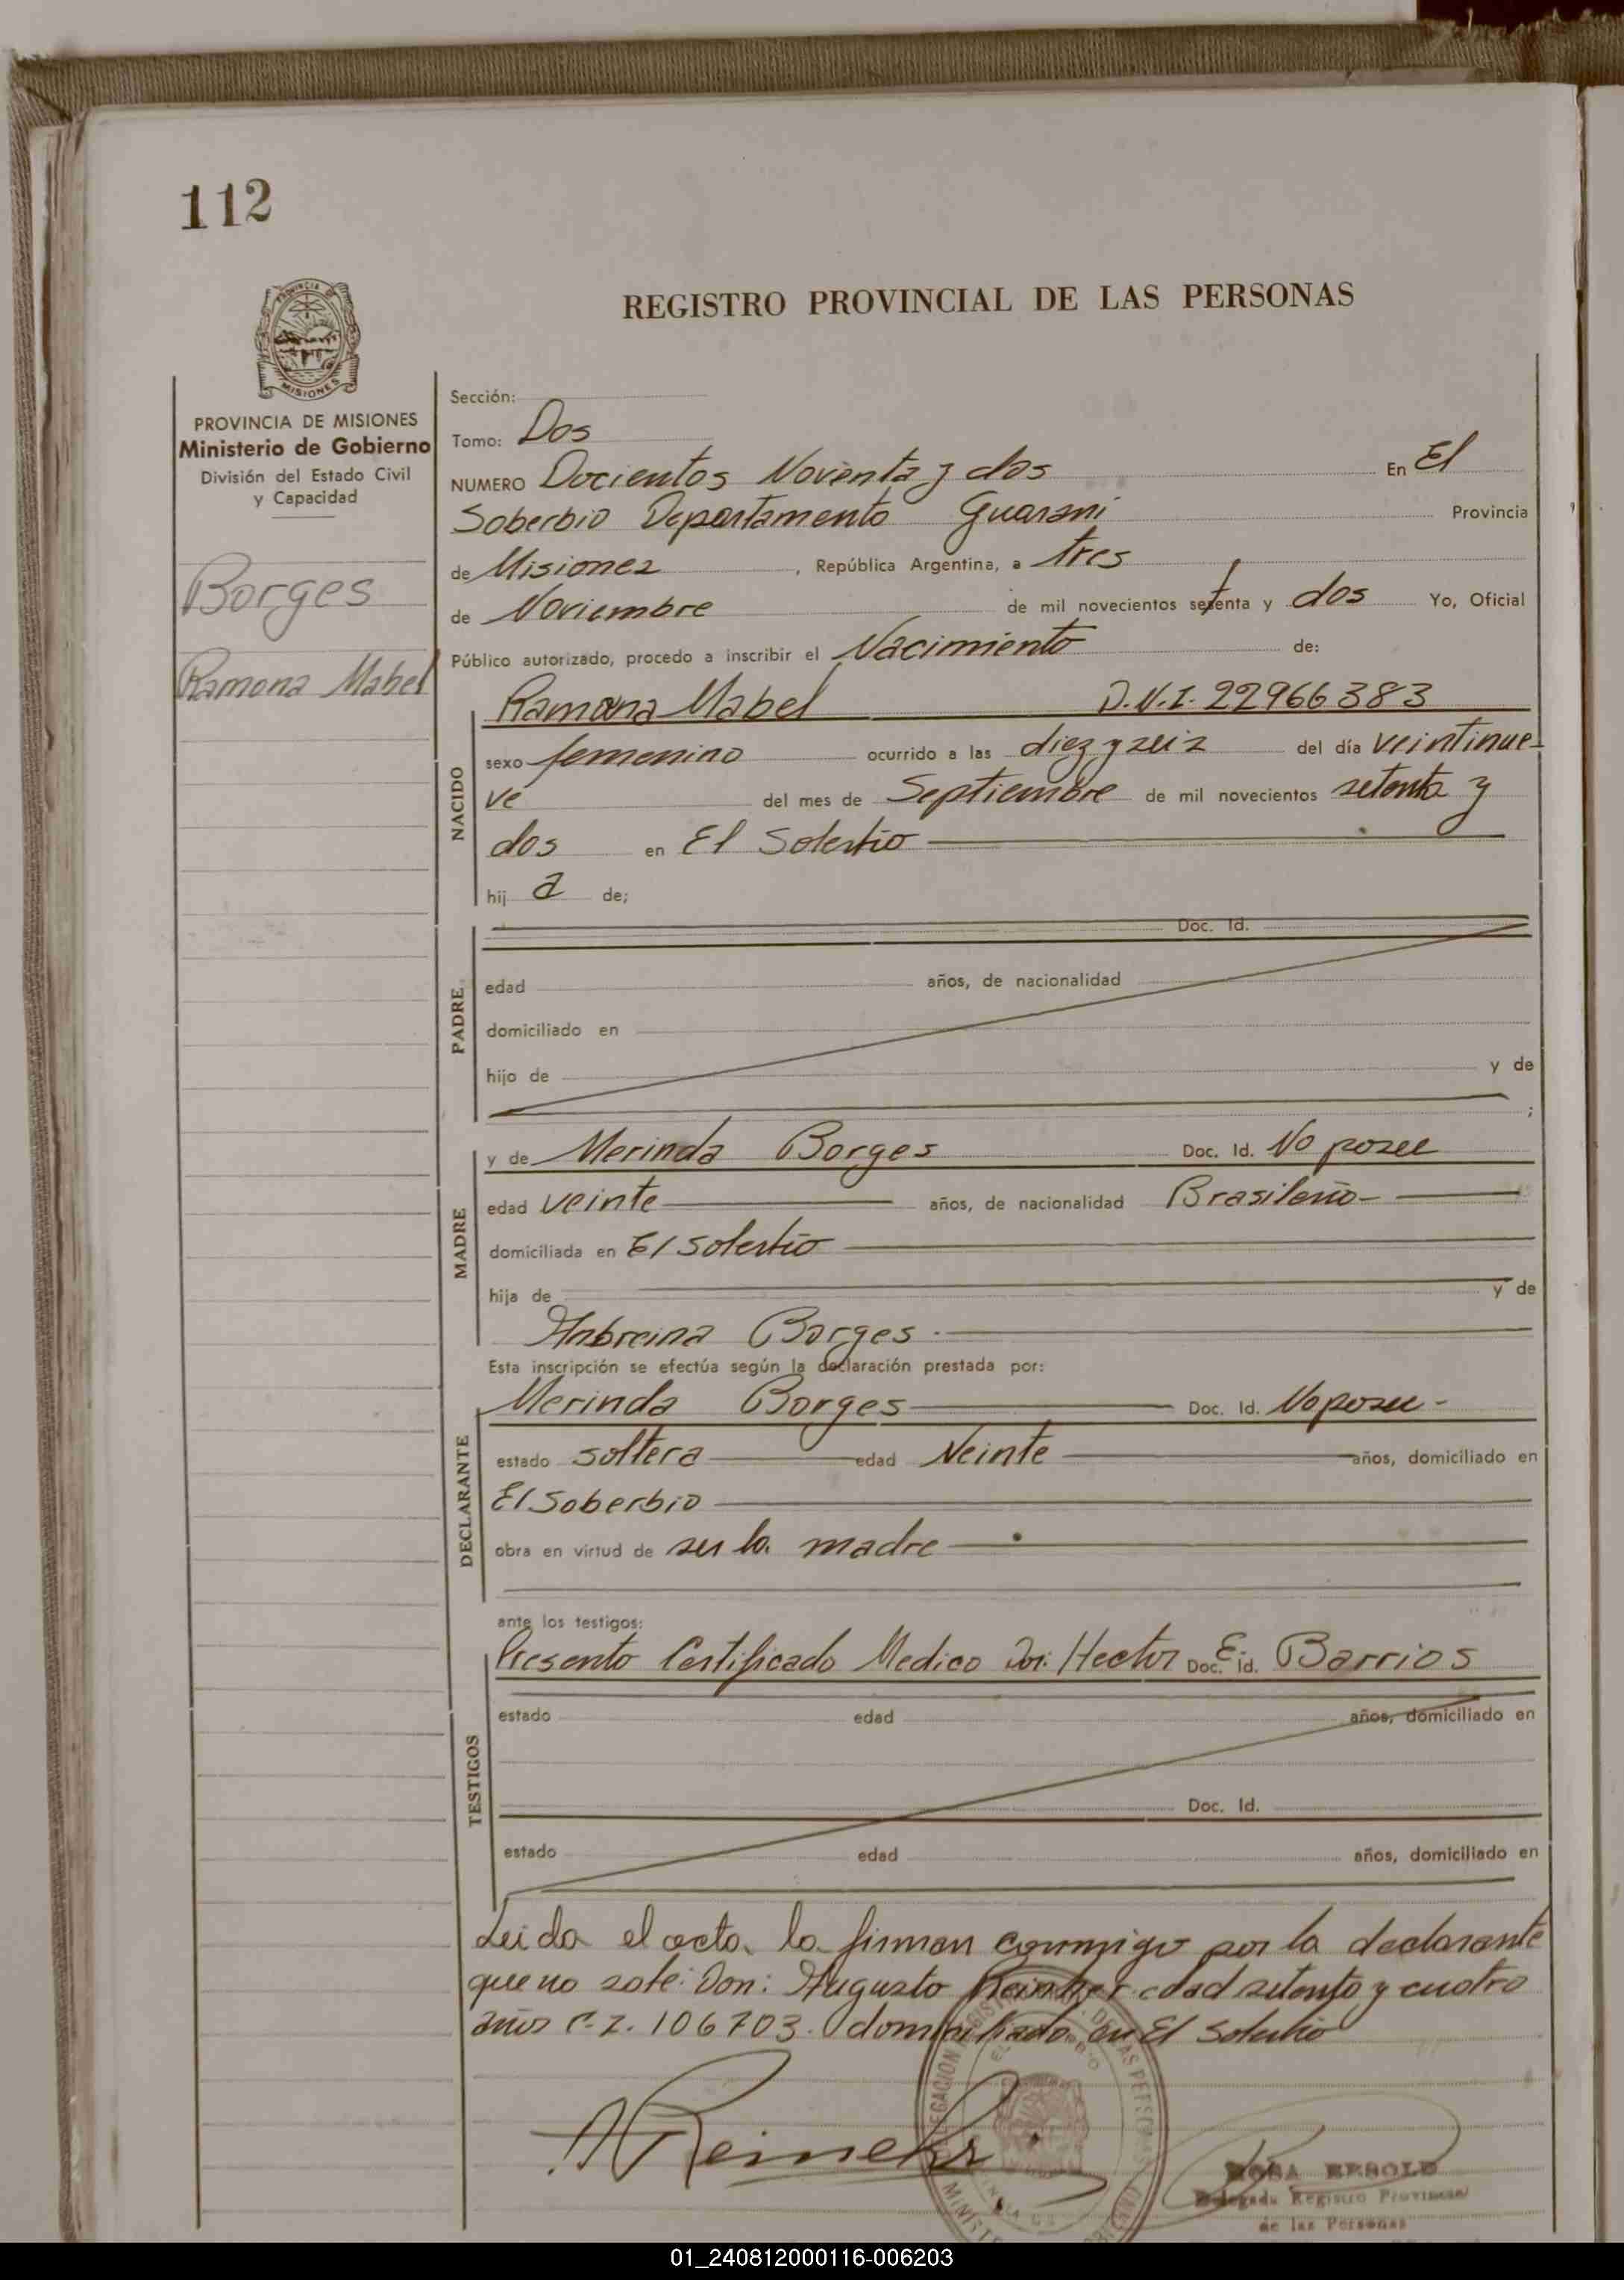 112
REGISTRO PROVINCIAL DE LAS PERSONAS
PROVINCIA DE MISIONES
Ministerio de Gobierno
División del Estado Civil
y Capacidad
Borges
Ramona Mabel
Sección:
Tomo: Dos
NUMERO Docientos Noventa y dos En El
Soberbio Departamento Guarani Provincia
de Misiones, República Argentina, a tres
de Noviembre de mil novecientos setenta y dos Yo, Oficial
Público autorizado, procedo a inscribir el Nacimiento de:
NACIDO
Ramona Mabel D.N.I. 22966383
sexo femenino ocurrido a las diez y seis del día veintinue-
ve del mes de Septiembre de mil novecientos setenta y
dos en El Soberbio
hij a de;
PADRE
Doc. Id.
edad años, de nacionalidad
domiciliado en
hijo de y de
;
MADRE
y de Merinda Borges Doc. Id. No posee
edad veinte años, de nacionalidad Brasileño-
domiciliada en El Soberbio
hija de y de
Anbreina Borges.
Esta inscripción se efectúa según la declaración prestada por:
DECLARANTE
Merinda Borges Doc. Id. No posee-
estado soltera edad Veinte años, domiciliado en
El Soberbio
obra en virtud de ser la madre
ante los testigos:
TESTIGOS
Presento Certificado Medico Dr: Hector E. Barrios Doc. Id.
estado edad años, domiciliado en
Doc. Id.
estado edad años, domiciliado en
Leida el acta, la firman conmigo por la declarante
que no sabe: Don: Augusto edad setenta y cuatro
años C.I. 106703. domiciliado en El Soberbio
A Reinehr
ROSA BESOLD
Delegada Registro Provincial
de las Personas
01_240812000116-006203